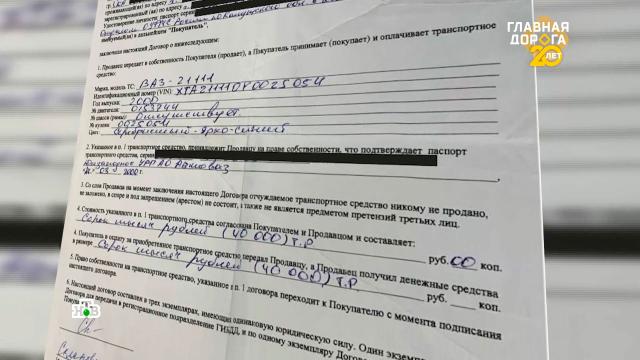 ГЛАВНАЯ
ДОРОГА
20 ЛЕТ
заключили настоящий Договор о нижеследующем:
1. Продавец передает в собственность Покупателя (продает), а Покупатель принимает (покупает) и оплачивает транспортное
средство:
Марка, модель ТС: ВАЗ-21111
Идентификационный номер (VIN): XTA21110Y0025054
Год выпуска: 2000
№ двигателя: 0153744
№ шасси (рамы): Отсутствует
№ кузова: 0025054
Цвет: Серебристый-Ярко-синий
2. Указанное в п. 1 транспортное средство, принадлежит Продавцу на праве собственности, что подтверждает паспорт
транспортного средства, серия
3. Со слов Продавца на момент заключения настоящего Договора отчуждаемое транспортное средство никому не продано,
не заложено, в споре и под запрещением (арестом) не состоит, а также не является предметом претензий третьих лиц.
4. Стоимость указанного в п. 1 транспортного средства согласована Покупателем и Продавцом и составляет:
Сорок тысяч рублей (40 000) Т.Р руб. 00 коп.
4. Покупатель в оплату за приобретенное транспортное средство передал Продавцу, а Продавец получил денежные средства
в размере: Сорок тысяч рублей (40 000) Т.Р руб. коп.
5. Право собственности на транспортное средство, указанное в п. 1 договора переходит к Покупателю с момента подписания
настоящего договора.
6. Настоящий договор составлен в трех экземплярах, имеющих одинаковую юридическую силу. Один экземпляр
Договора для передачи в регистрационное подразделение ГИБДД, и по одному экземпляру
НТВ